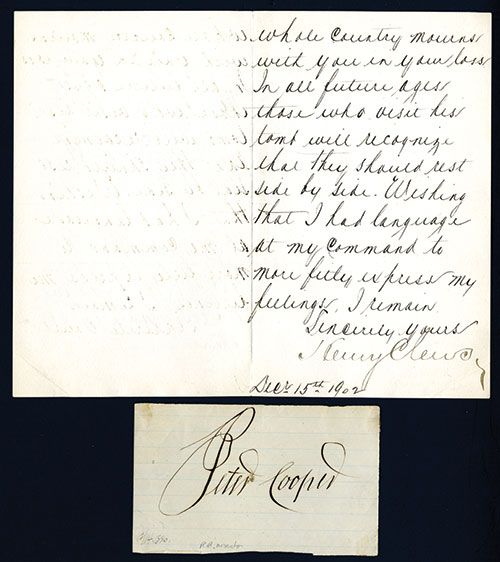 whole Country mourns
with you in your loss
In all future ages
those who visit his
tomb will recognize
that they should rest
side by side. Wishing
that I had language
at my command to
more fully express my
feelings, I remain
Sincerely yours
Henry Clews
Decr 15th 1902
Peter Cooper